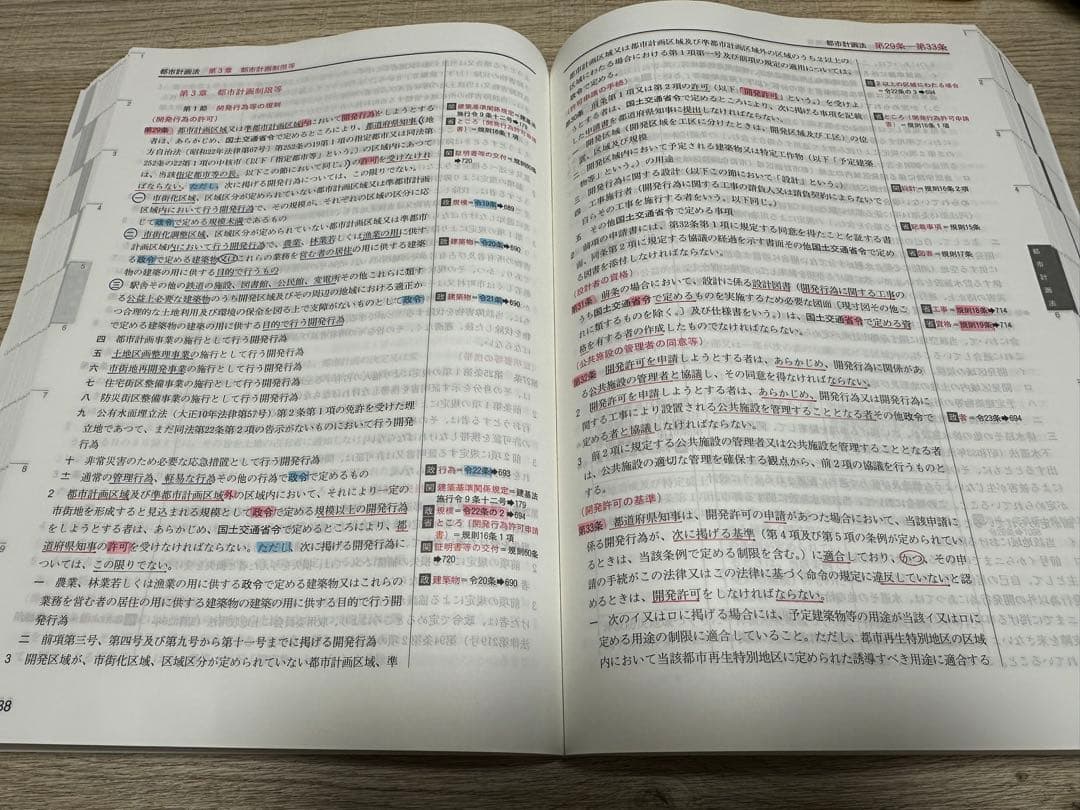 都市計画法 第3章 都市計画制限等
第3章 都市計画制限等
第1節 開発行為等の規制
(開発行為の許可)
第29条 都市計画区域又は準都市計画区域内において開発行為をしようとする
者は、あらかじめ、国土交通省令で定めるところにより、都道府県知事(地
方自治法(昭和22年法律第67号)第252条の19第1項の指定都市又は同法第
252条の22第1項の中核市(以下「指定都市等」という。)の区域内にあつて
は、当該指定都市等の長。以下この節において同じ。)の許可を受けなけれ
ばならない。ただし、次に掲げる開発行為については、この限りでない。
一 市街化区域、区域区分が定められていない都市計画区域又は準都市計画
区域内において行う開発行為で、その規模が、それぞれの区域の区分に応
じて政令で定める規模未満であるもの
二 市街化調整区域、区域区分が定められていない都市計画区域又は準都市
計画区域内において行う開発行為で、農業、林業若しくは漁業の用に供す
る政令で定める建築物又はこれらの業務を営む者の居住の用に供する建築
物の建築の用に供する目的で行うもの
三 駅舎その他の鉄道の施設、図書館、公民館、変電所その他これらに類す
る公益上必要な建築物のうち開発区域及びその周辺の地域における適正か
つ合理的な土地利用及び環境の保全を図る上で支障がないものとして政令
で定める建築物の建築の用に供する目的で行う開発行為
四 都市計画事業の施行として行う開発行為
五 土地区画整理事業の施行として行う開発行為
六 市街地再開発事業の施行として行う開発行為
七 住宅街区整備事業の施行として行う開発行為
八 防災街区整備事業の施行として行う開発行為
九 公有水面埋立法(大正10年法律第57号)第2条第1項の免許を受けた埋
立地であつて、まだ同法第22条第2項の告示がないものにおいて行う開発
行為
十 非常災害のため必要な応急措置として行う開発行為
十一 通常の管理行為、軽易な行為その他の行為で政令で定めるもの
2 都市計画区域及び準都市計画区域外の区域内において、それにより一定の
市街地を形成すると見込まれる規模として政令で定める規模以上の開発行為
をしようとする者は、あらかじめ、国土交通省令で定めるところにより、都
道府県知事の許可を受けなければならない。ただし、次に掲げる開発行為に
ついては、この限りでない。
一 農業、林業若しくは漁業の用に供する政令で定める建築物又はこれらの
業務を営む者の居住の用に供する建築物の建築の用に供する目的で行う開
発行為
二 前項第三号、第四号及び第九号から第十一号までに掲げる開発行為
3 開発区域が、市街化区域、区域区分が定められていない都市計画区域、準
関 建築基準関係規定=建基法
施行令9条十二号➡179
省 ところ〔開発行為許可申請
書〕=規則16条1項
関 証明書等の交付=規則60条
➡720
政 規模=令19条➡689
政 建築物=令20条➡690
政 建築物=令21条➡690
政 行為=令22条➡693
関 建築基準関係規定=建基法
施行令9条十二号➡179
政 規模=令22条の2➡694
省 ところ〔開発行為許可申請
書〕=規則16条1項
関 証明書等の交付=規則60条
➡720
政 建築物=令20条➡690
38
都市計画法 第29条―第33条
都市計画区域又は都市計画区域及び準都市計画区域外の区域のうち2以上の
区域にわたる場合における第1項第一号及び前項の規定の適用については、
政令で定める。
(許可申請の手続)
第30条 前条第1項又は第2項の許可(以下「開発許可」という。)を受けよ
うとする者は、国土交通省令で定めるところにより、次に掲げる事項を記載
した申請書を都道府県知事に提出しなければならない。
一 開発区域(開発区域を工区に分けたときは、開発区域及び工区)の位
置、区域及び規模
二 開発区域内において予定される建築物又は特定工作物(以下「予定建築
物等」という。)の用途
三 開発行為に関する設計(以下この節において「設計」という。)
四 工事施行者(開発行為に関する工事の請負人又は請負契約によらないで
自らその工事を施行する者をいう。以下同じ。)
五 その他国土交通省令で定める事項
2 前項の申請書には、第32条第1項に規定する同意を得たことを証する書
面、同条第2項に規定する協議の経過を示す書面その他国土交通省令で定め
る図書を添付しなければならない。
(設計者の資格)
第31条 前条の場合において、設計に係る設計図書(開発行為に関する工事の
うち国土交通省令で定めるものを実施するため必要な図面(現寸図その他こ
れに類するものを除く。)及び仕様書をいう。)は、国土交通省令で定める資
格を有する者の作成したものでなければならない。
(公共施設の管理者の同意等)
第32条 開発許可を申請しようとする者は、あらかじめ、開発行為に関係があ
る公共施設の管理者と協議し、その同意を得なければならない。
2 開発許可を申請しようとする者は、あらかじめ、開発行為又は開発行為に
関する工事により設置される公共施設を管理することとなる者その他政令で
定める者と協議しなければならない。
3 前2項に規定する公共施設の管理者又は公共施設を管理することとなる者
は、公共施設の適切な管理を確保する観点から、前2項の協議を行うものと
する。
(開発許可の基準)
第33条 都道府県知事は、開発許可の申請があつた場合において、当該申請に
係る開発行為が、次に掲げる基準(第4項及び第5項の条例が定められてい
るときは、当該条例で定める制限を含む。)に適合しており、かつ、その申
請の手続がこの法律又はこの法律に基づく命令の規定に違反していないと認
めるときは、開発許可をしなければならない。
一 次のイ又はロに掲げる場合には、予定建築物等の用途が当該イ又はロに
定める用途の制限に適合していること。ただし、都市再生特別地区の区域
内において当該都市再生特別地区に定められた誘導すべき用途に適合する
政 2以上の区域にわたる場合
=令22条の3➡694
省 ところ〔開発行為許可申請
書〕=規則16条1項
関 設計=規則16条2項
省 記載事項=規則15条
省 図書=規則17条
省 工事=規則18条➡714
省 資格=規則19条➡714
政 者=令23条➡694
都市計画法